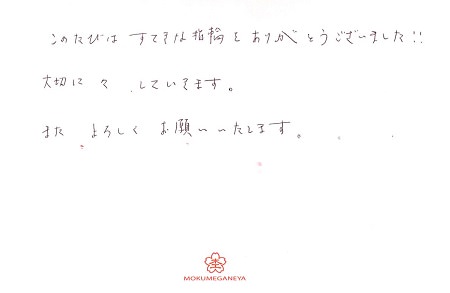 このたびは すてきな指輪をありがとうございました!!
大切に々 しています。
また よろしく お願いいたします。
MOKUMEGANEYA